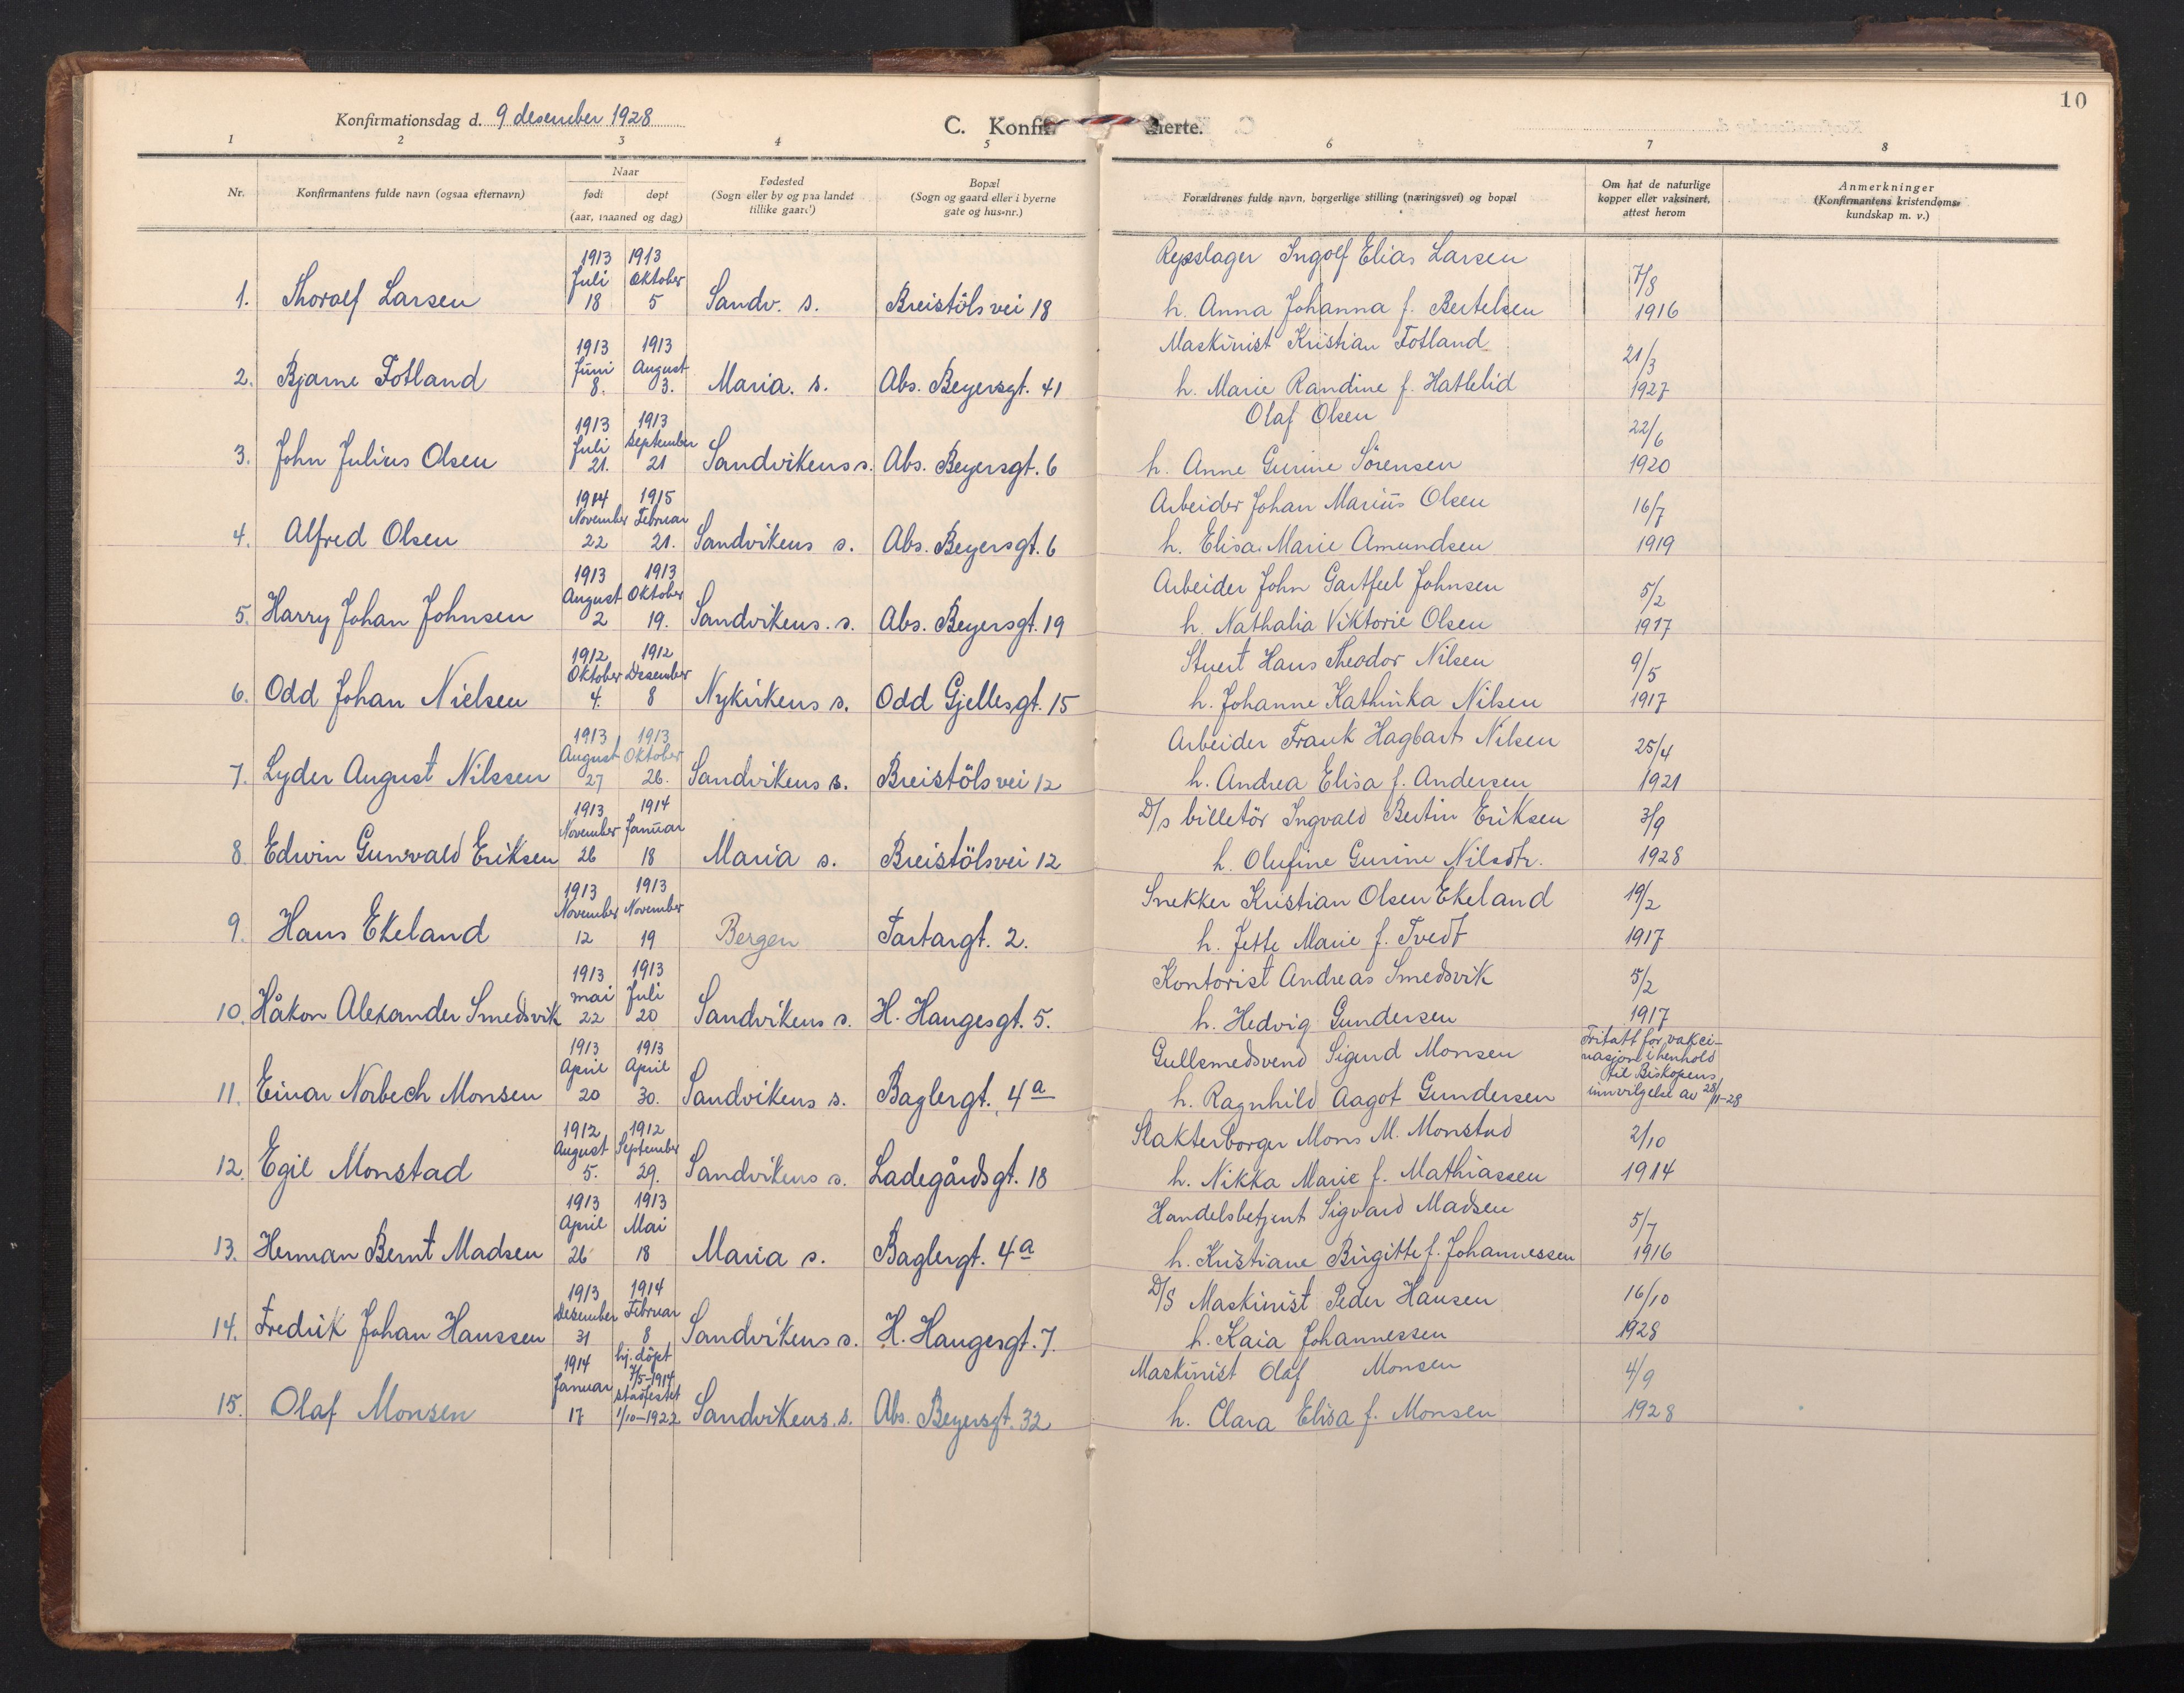 10
Konfirmationsdag d. 9 desember 1928
C. Konfir merte.
1 2 3 4 5 6 7 8
Nr.
Konfirmantens fulde navn (ogsaa efternavn)
Naar
født døpt
(aar, maaned og dag)
Fødested
(Sogn eller by og paa landet
tillike gaard)
Bopæl
(Sogn og gaard eller i byerne
gate og hus-nr.)
Forældrenes fulde navn, borgerlige stilling (næringsvei) og bopæl
Om hat de naturlige
kopper eller vaksinert,
attest herom
Anmerkninger
(Konfirmantens kristendoms-
kundskap m. v.)
1913 1913 Repslager Ingolf Elias Larsen
Juli Oktober 7/8
1. Thoralf Larsen 18 5 Sandv. s. Breistöls vei 18 h. Anna Johanna f. Bertelsen 1916
1913 1913 Maskinist Kristian Fotland
Juni August 21/3
2. Bjarne Fotland 8. 3. Maria. s. Abs. Beyersgt. 41 h. Marie Randine f. Hatlelid 1927
1913 1913 Olaf Olsen
Juli September 22/6
3. John Julius Olsen 21. 21 Sandvikens s. Abs. Beyersgt. 6 h. Anne Gurine Sörensen 1920
1914 1915 Arbeider Johan Marius Olsen
November Februar 16/7
4. Alfred Olsen 22 21. Sandvikens s. Abs. Beyersgt. 6 h. Elisa Marie Amundsen 1919
1913 1913 Arbeider John Gartfeel Johnsen
August Oktober 5/2
5. Harry Johan Johnsen 2 19. Sandvikens. s. Abs. Beyersgt. 19 h. Nathalia Viktorie Olsen 1917
1912 1912 Stuert Hans Theodor Nilsen
Oktober Desember 9/5
6. Odd Johan Nielsen 4. 8 Nykirkens s. Odd Gjellesgt. 15 h. Johanne Kathinka Nilsen 1917
1913 1913 Arbeider Frank Hagbart Nilsen
August Oktober 25/4
7. Lyder August Nilssen 27 26. Sandvikens s. Breistöls vei 12 h. Andrea Elisa f. Andersen 1921
1913 1914 D/s billetör Ingvald Bertin Eriksen
November Januar 3/9
8. Edwin Gunvald Eriksen 26 18 Maria s. Breistölsvei 12 h. Olufine Gurine Nilsdtr. 1928
1913 1913 Snekker Kristian Olsen Ekeland
November November 19/2
9. Hans Ekeland 12 19 Bergen Tartargt. 2. h. Jette Marie f. Tvedt 1917
1913 1913 Kontorist Andreas Smedsvik
mai Juli 5/2
10. Håkon Alexander Smedsvik 22 20 Sandvikens s. H. Haugesgt. 5. h. Hedvig Gundersen 1917
1913 1913 Gullsmedsvend Sigurd Monsen Fritatt for vaksi-
April April nasjon i henhold
til Biskopens
11. Einar Norbech Monsen 20 30. Sandvikens s. Baglergt. 4a h. Ragnhild Aagot Gundersen innvilgelse av 28/11-28
1912 1912 Slakterborger Mons M. Monstad
August September 2/10
12. Egil Monstad 5. 29. Sandvikens s. Ladegårdsgt. 18 h. Nikka Marie f. Mathiassen 1914
1913 1913 Handelsbetjent Sigvard Madsen
April Mai 5/7
13. Herman Bernt Madsen 26 18 Maria s. Baglergt. 4a h. Kristiane Birgitte f. Johannessen 1916
1913 1914 D/S Maskinist Peder Hansen
Desember Februar 16/10
14. Fredrik Johan Hanssen 31 8 Sandvikens s. H. Haugesgt. 7. h. Kaia Johannessen 1928
1914 hj. döpt Maskinist Olaf Monsen
Januar 7/5-1914 4/9
stadfestet
15. Olaf Monsen 17 1/10-1922 Sandvikens. s. Abs. Beyersgt. 32 h. Clara Elisa f. Monsen 1928